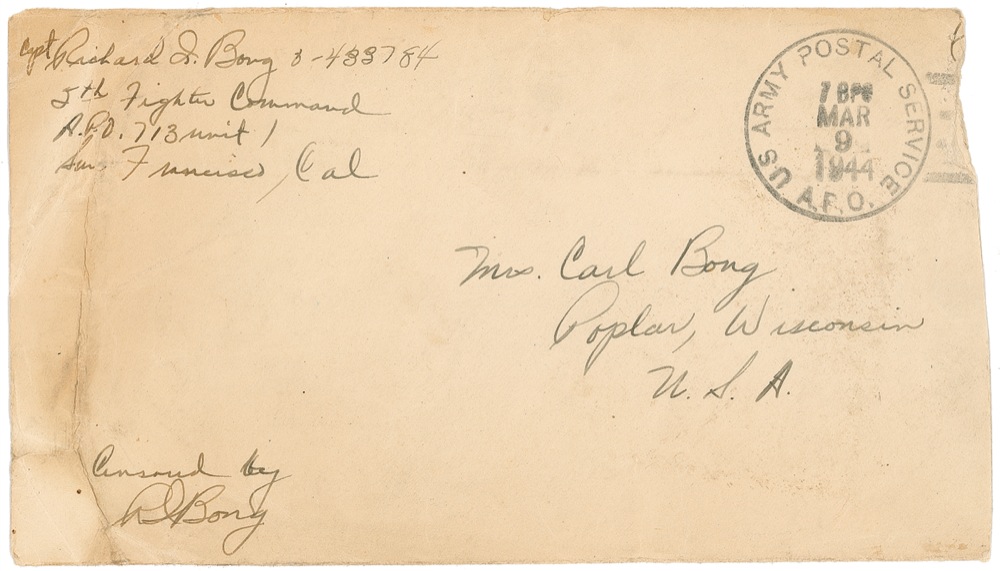 Capt Richard I. Bong O-433784
5th Fighter Command
A.P.O. 713 unit 1
San Francisco, Cal
US ARMY POSTAL SERVICE
MAR
9
1944
A.P.O.
Mrs. Carl Bong
Poplar, Wisconsin
U. S. A.
Censored by
RIBong